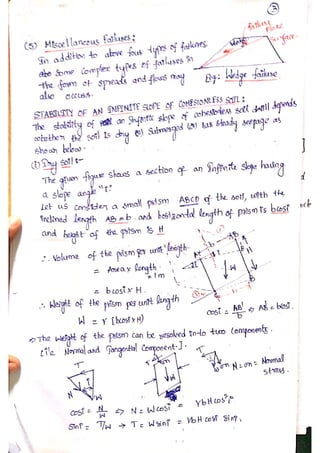 (5) Miscellaneous Failures:
In addition to above four types of failures
some complex types of failures in
the form of spreads and flows may
also occurs.
Failure
Plane
Surface
Wedge
Eg: Wedge failure
STABILITY OF AN INFINITE SLOPE OF COHESIONLESS SOIL:
The stability of an infinite slope of cohesionless soil depends
whether the soil is dry (or) submerged (or) has steady seepage as
shown below.
(1) Dry soil :-
The given figure shows a section of an infinite slope having
a slope angle "i"
Let us consider a small prism ABCD of the soil, with the
inclined length AB = b and horizontal length of prism is bcosi
and height of the prism is H
∴ Volume of the prism per unit length
= Area x length
1m
= b cosi x H.
∴ Weight of the prism per unit length
W = γ [bcosi x H]
cosi = AB'/b ⇒ AB' = bcosi.
⇒ The weight of the prism can be resolved in to two components
[i.e Normal and Tangential Component].
σn = Normal
stress.
cosi = N/W ⇒ N = Wcosi = γbHcos²i
sini = T/W → T = Wsini = γbH cosi sini,